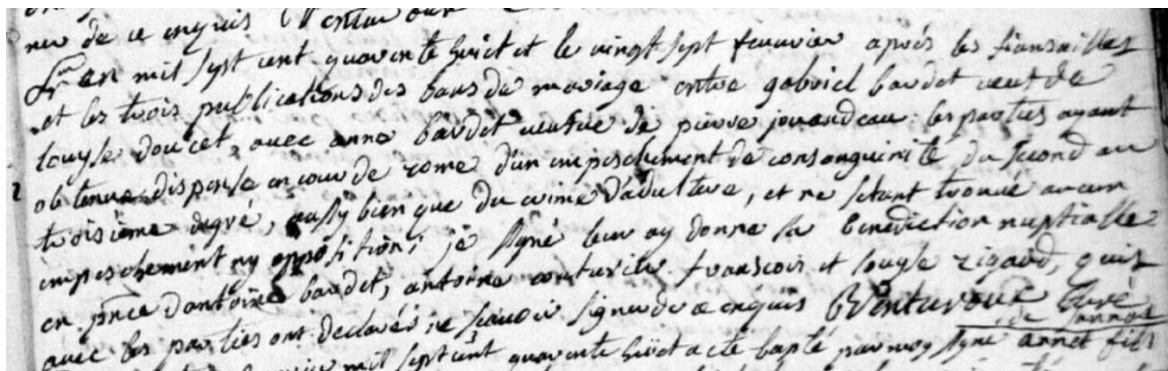 ner de ce enquis
L'an mil sept cent quarente huict et le vingt sept feuvrier après les fiansailles
et les trois publications des bans de mariage entre gabriel baudet veuf de
louyse doucet, avec anne baudet veufve de pierre jouandeau. les parties ayant
obtenue dispense en cour de rome d'un empeschement de consanguinité du second au
troisième degré, aussy bien que du crime d'adultere, et ne setant trouvé aucun
empeschement ny opposition; je signé leur ay donné la benediction nuptialle
en pnce d'antoine baudet, antoine couturier francois et louyse rigaud, quis
avec les parties ont declarés ne scavoir signer de ce enquis Bventureux Curé
de
mil sept cent quarente huict a eté bapté par moy signé annet fils